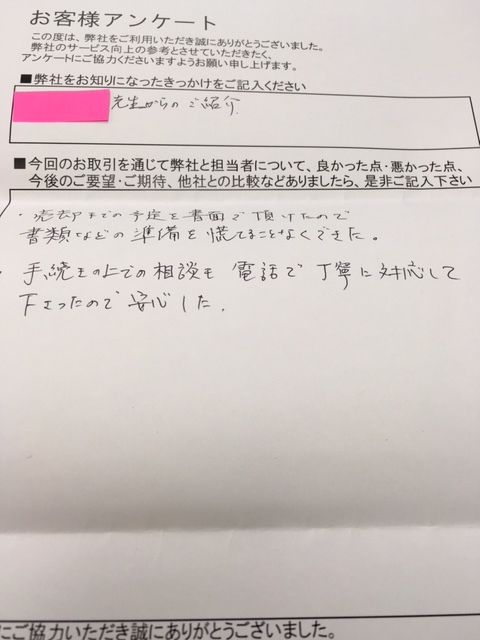 お客様アンケート
この度は、弊社をご利用いただき誠にありがとうございました。
弊社のサービス向上の参考とさせていただきたく、
アンケートにご協力くださいますようお願い申し上げます。
■弊社をお知りになったきっかけをご記入ください
先生からのご紹介.
■今回のお取引を通じて弊社と担当者について、良かった点・悪かった点、
今後のご要望・ご期待、他社との比較などありましたら、是非ご記入下さい
・売却までの予定を書面で頂けたので
書類などの準備を慌てることなくできた。
・手続きの上での相談も電話で丁寧に対応して
下さったので安心した.
にご協力いただき誠にありがとうございました。